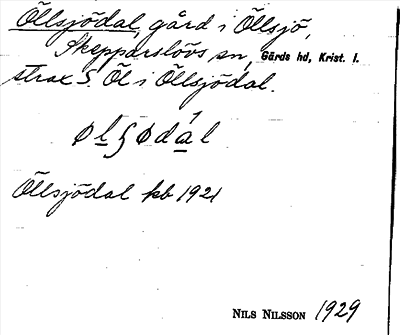 Öllsjödal, gård i Öllsjö,
Skepparslövs sn, Gärds hd, Krist. l.
strax S. Öl i Öllsjödal.
ølʃødál
Öllsjödal kb 1921
NILS NILSSON 1929